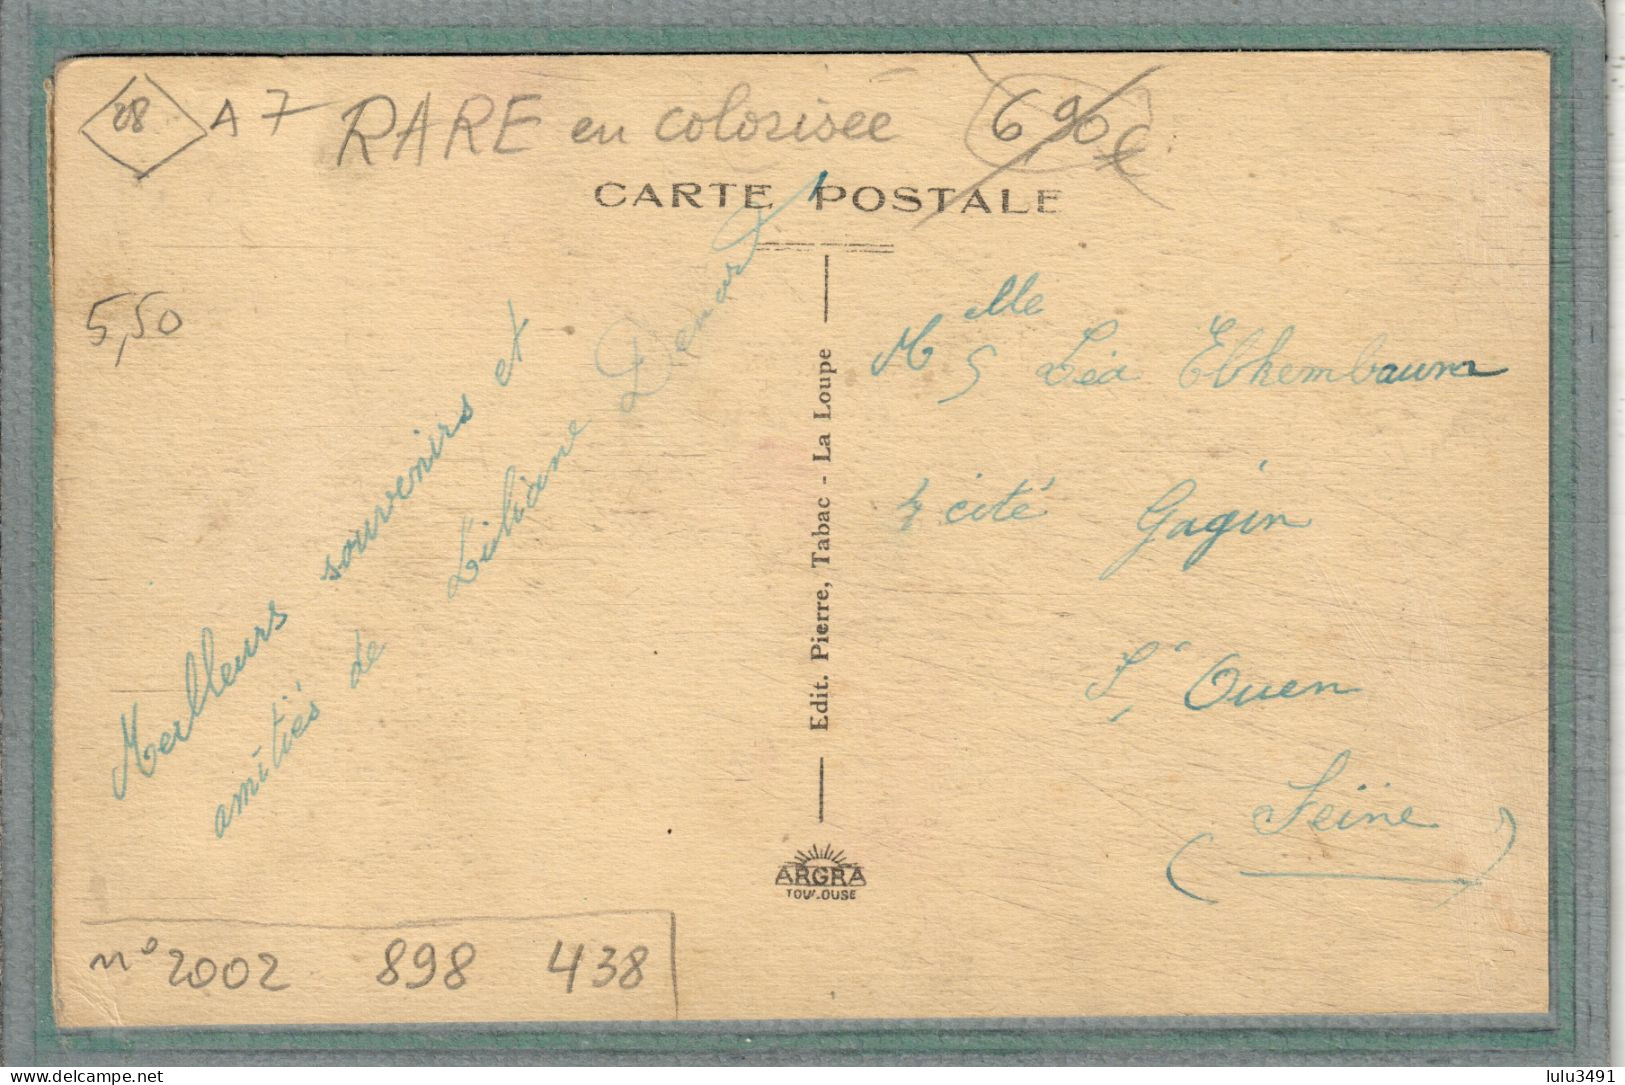 28 A7 RARE en colorisée 6,90€
CARTE POSTALE
5,50
Meilleurs souvenirs et
amitiés de Liliane Denard
Edit. Pierre, Tabac - La Loupe
Mlle Léa Elkhembaum
4 cité Gagin
St Ouen
(Seine)
ARGRA
TOULOUSE
n° 2002 898 438
delcampe.net
lulu3491